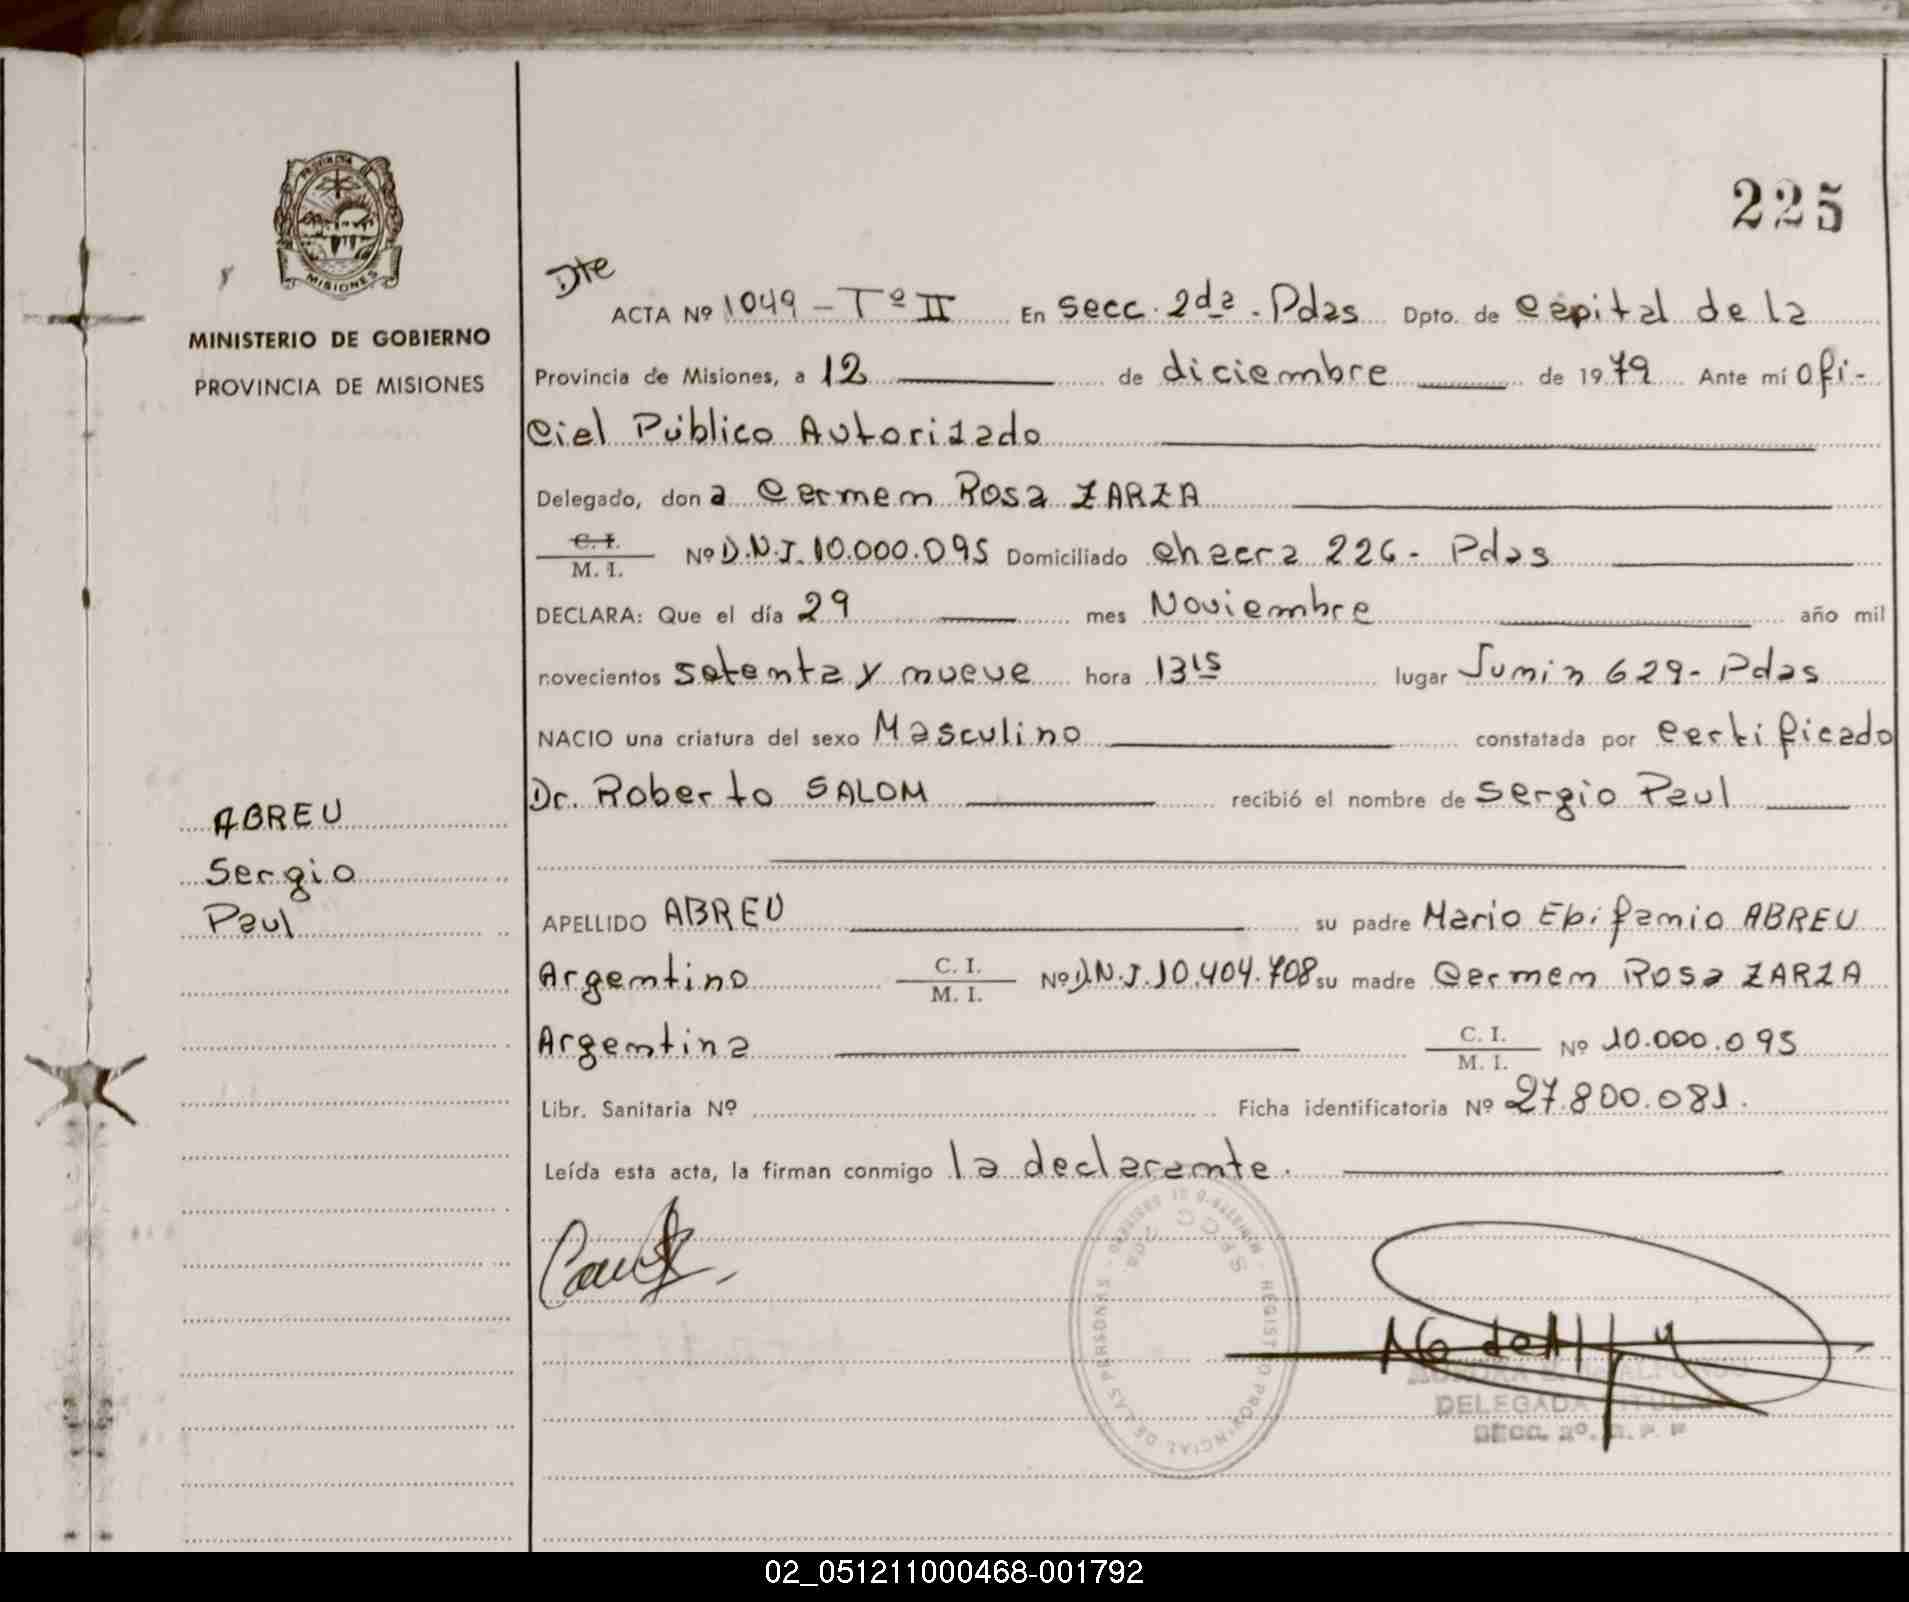 PROVINCIA
MISIONES
MINISTERIO DE GOBIERNO
PROVINCIA DE MISIONES
ABREU
Sergio
Paul
225
Dte
ACTA Nº 1049 - Tº II En Secc. 2da. Pdas Dpto. de Capital de la
Provincia de Misiones, a 12 de diciembre de 1979 Ante mí Ofi-
cial Público Autorizado
Delegado, don a Carmen Rosa ZARZA
C. I.
M. I. Nº D.N.I. 10.000.095 Domiciliado chacra 226 - Pdas
DECLARA: Que el día 29 mes Noviembre año mil
novecientos setenta y nueve hora 13 15 lugar Junin 629 - Pdas
NACIO una criatura del sexo Masculino constatada por Certificado
Dr. Roberto SALOM recibió el nombre de Sergio Paul
APELLIDO ABREU su padre Mario Epifanio ABREU
Argentino C. I. M. I. Nº D.N.I. 10.404.708 su madre Carmen Rosa ZARZA
Argentina C. I. M. I. Nº 10.000.095
Libr. Sanitaria Nº Ficha identificatoria Nº 27.800.081.
Leída esta acta, la firman conmigo la declarante.
REGISTRO PROVINCIAL DE LAS PERSONAS
DELEGADA
SECC. 2º
02_051211000468-001792